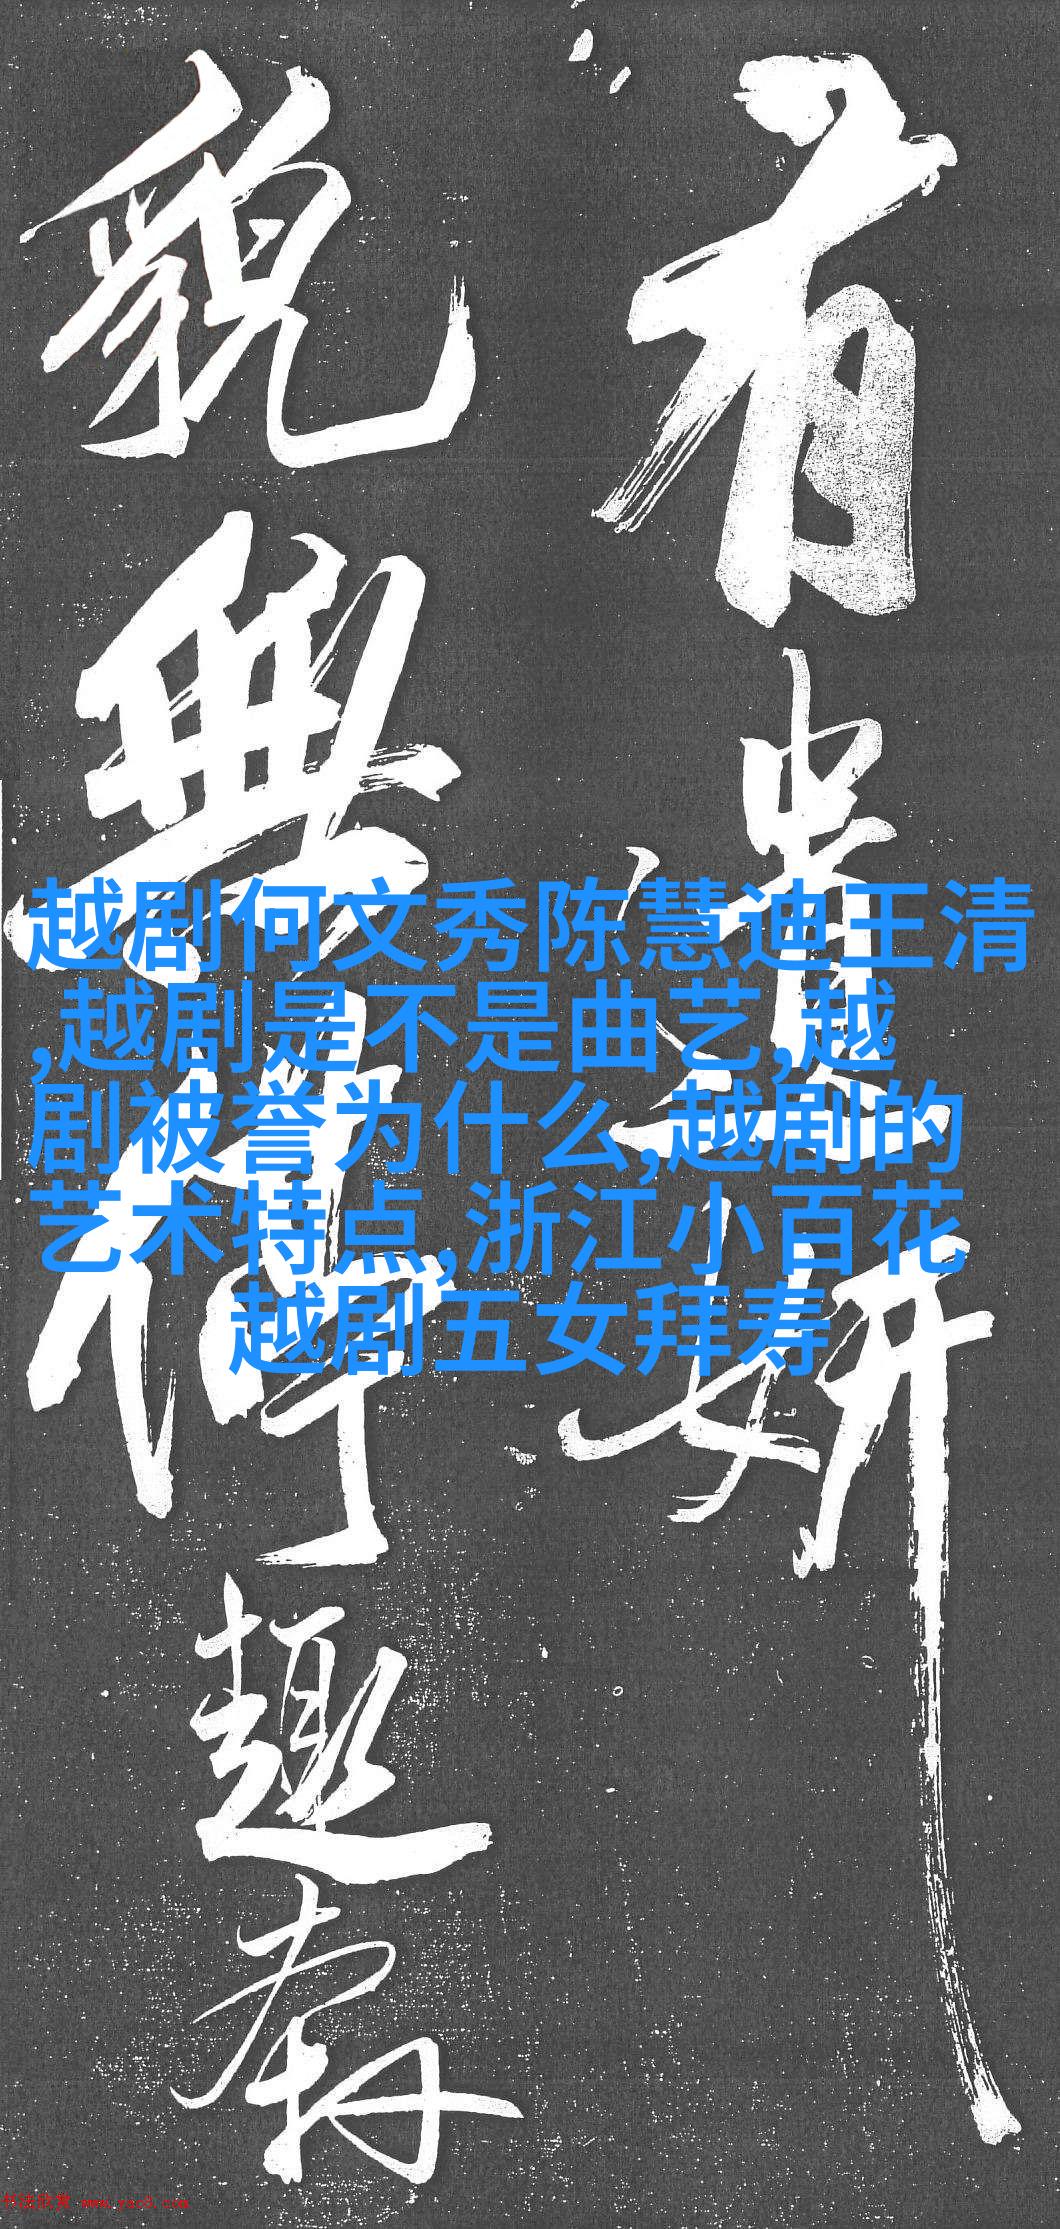 有遗妍
貌無停趣 
越剧何文秀陈慧迪王清
,越剧是不是曲艺,越
剧被誉为什么,越剧的
艺术特点,浙江小百花
越剧五女拜寿
书法欣赏 www.yac8.com